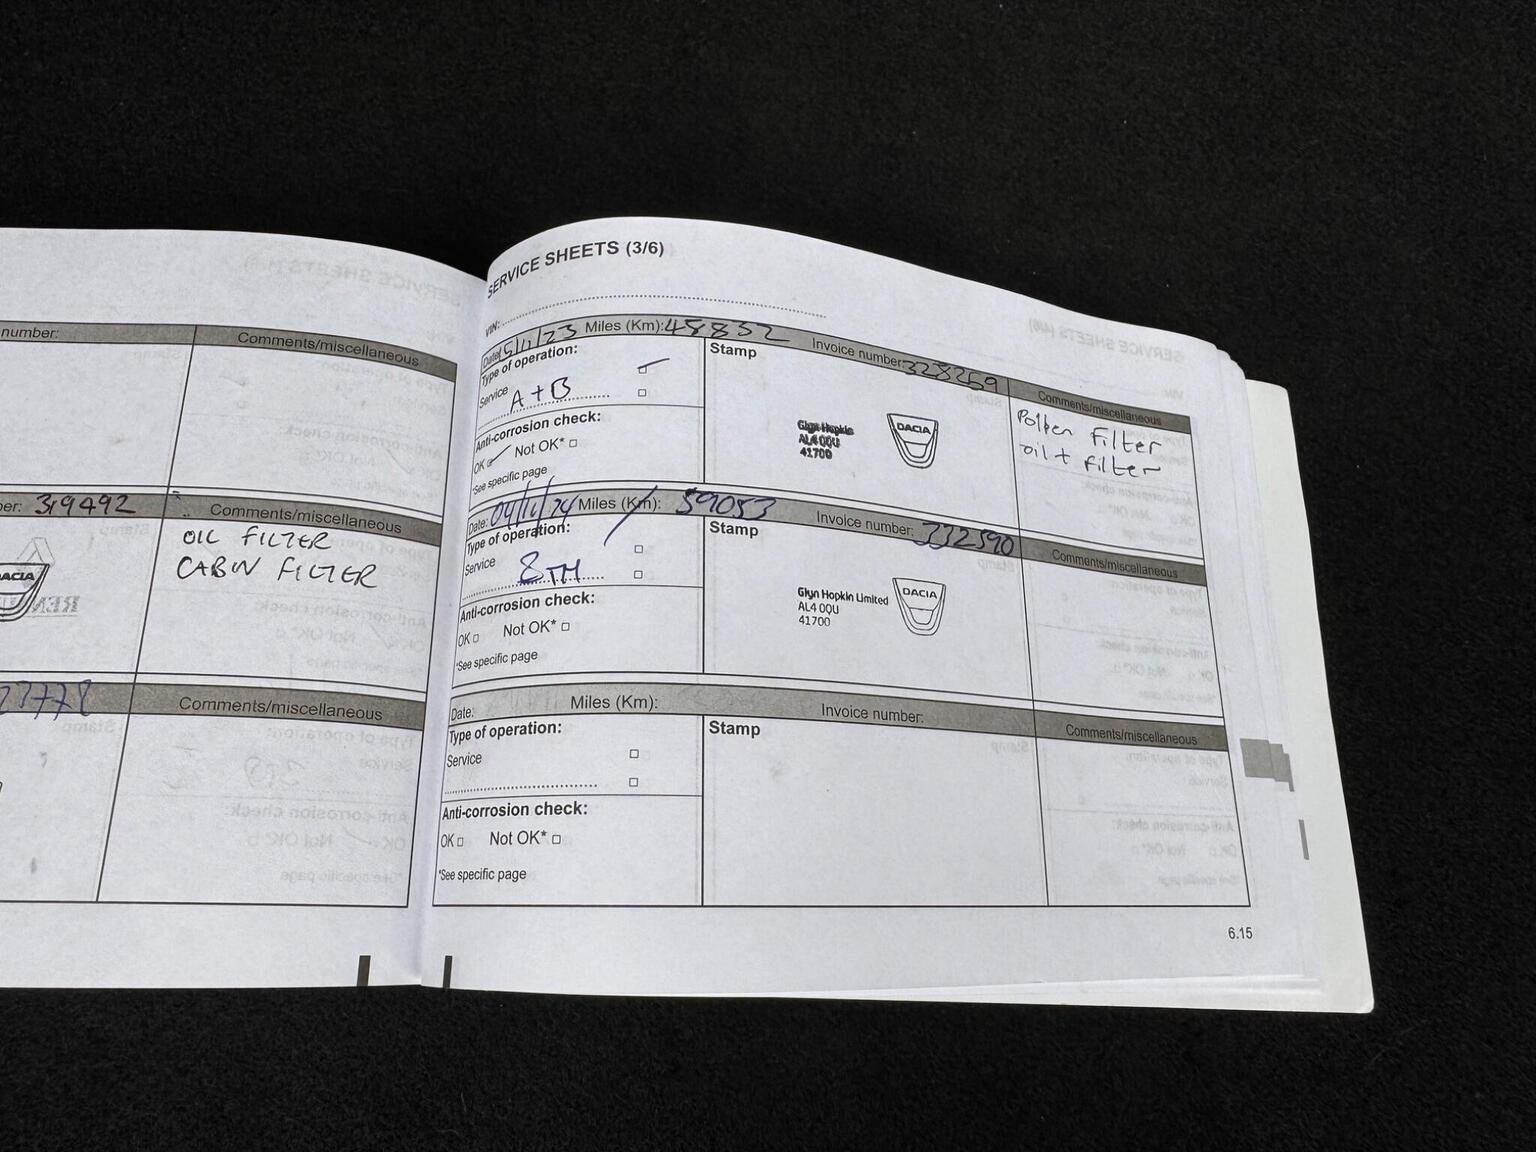 number:
Comments/miscellaneous
319492
Comments/miscellaneous
OIL FILTER
CABIN FILTER
DACIA
Comments/miscellaneous
SERVICE SHEETS (3/6)
VIN:
Date: Miles (Km): 48832 Invoice number: 328269
Type of operation:
Stamp
Comments/miscellaneous
Service
A + B
Anti-corrosion check:
OK Not OK*
*See specific page
Glyn Hopkin
AL4 0QU
41700
DACIA
Pollen Filter
oil + filter
Date: 04/11/24 Miles (Km): 59053 Invoice number: 332590
Type of operation:
Stamp
Comments/miscellaneous
Service
8TH
Anti-corrosion check:
OK Not OK*
*See specific page
Glyn Hopkin Limited
AL4 0QU
41700
DACIA
Date: Miles (Km): Invoice number:
Type of operation:
Stamp
Comments/miscellaneous
Service
Anti-corrosion check:
OK Not OK*
*See specific page
6.15